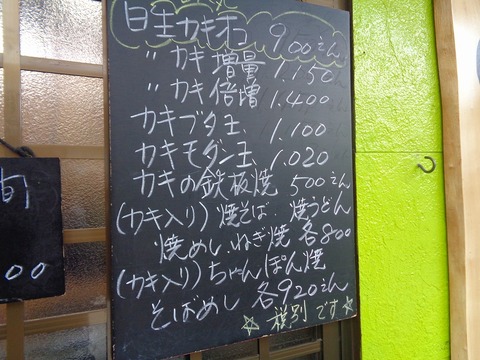 日生カキオコ 900えん
〃 カキ増量 1.150
〃 カキ倍増 1.400
カキブタ玉 1.100
カキモダン玉 1.020
カキの鉄板焼 500えん
(カキ入り) 焼そば. 焼うどん
焼めし. ねぎ焼 各800
(カキ入り) ちゃんぽん焼
そばめし 各920えん
☆ 税別です ☆
旬
00